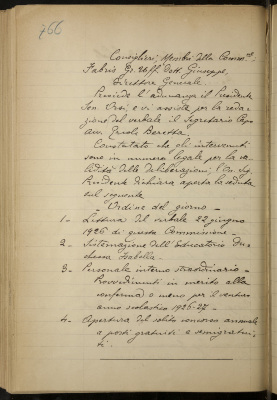 766
Consiglieri, Membri della Commne.
Fabris Gr. Uff. Dott. Giuseppe,
Direttore Generale.
Presiede l'adunanza il Presidente
Sen. Orsi e vi assiste per la reda-
zione del verbale il Segretario Capo
Ercole Baretta.
Constatato che gli intervenuti
sono in numero legale per la va-
lidità delle deliberazioni, l'On. Sig.
Presidente dichiara aperta la seduta
sul seguente
Ordine del giorno -
1- Lettura del verbale 22 giugno
1926 di questa Commissione -
2- Sistemazione dell'Educatorio Du-
chessa Isabella -
3- Personale interno straordinario -
Provvedimenti in merito alla
conferma o meno per il venturo
anno scolastico 1926-27 -
4- Apertura del solito concorso annuale
a posti gratuiti e semigratui-
ti.